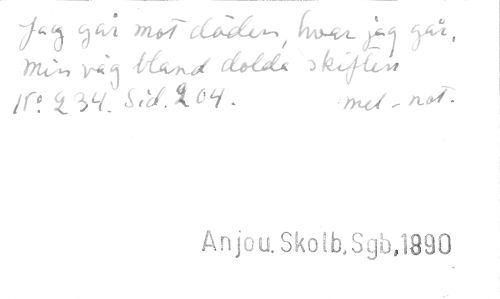 Jag går mot döden, hvar jag går.
min väg bland dolda skiften
No. 234. Sid. 204. mel-not.
Anjou. Skolb. Sgb, 1890